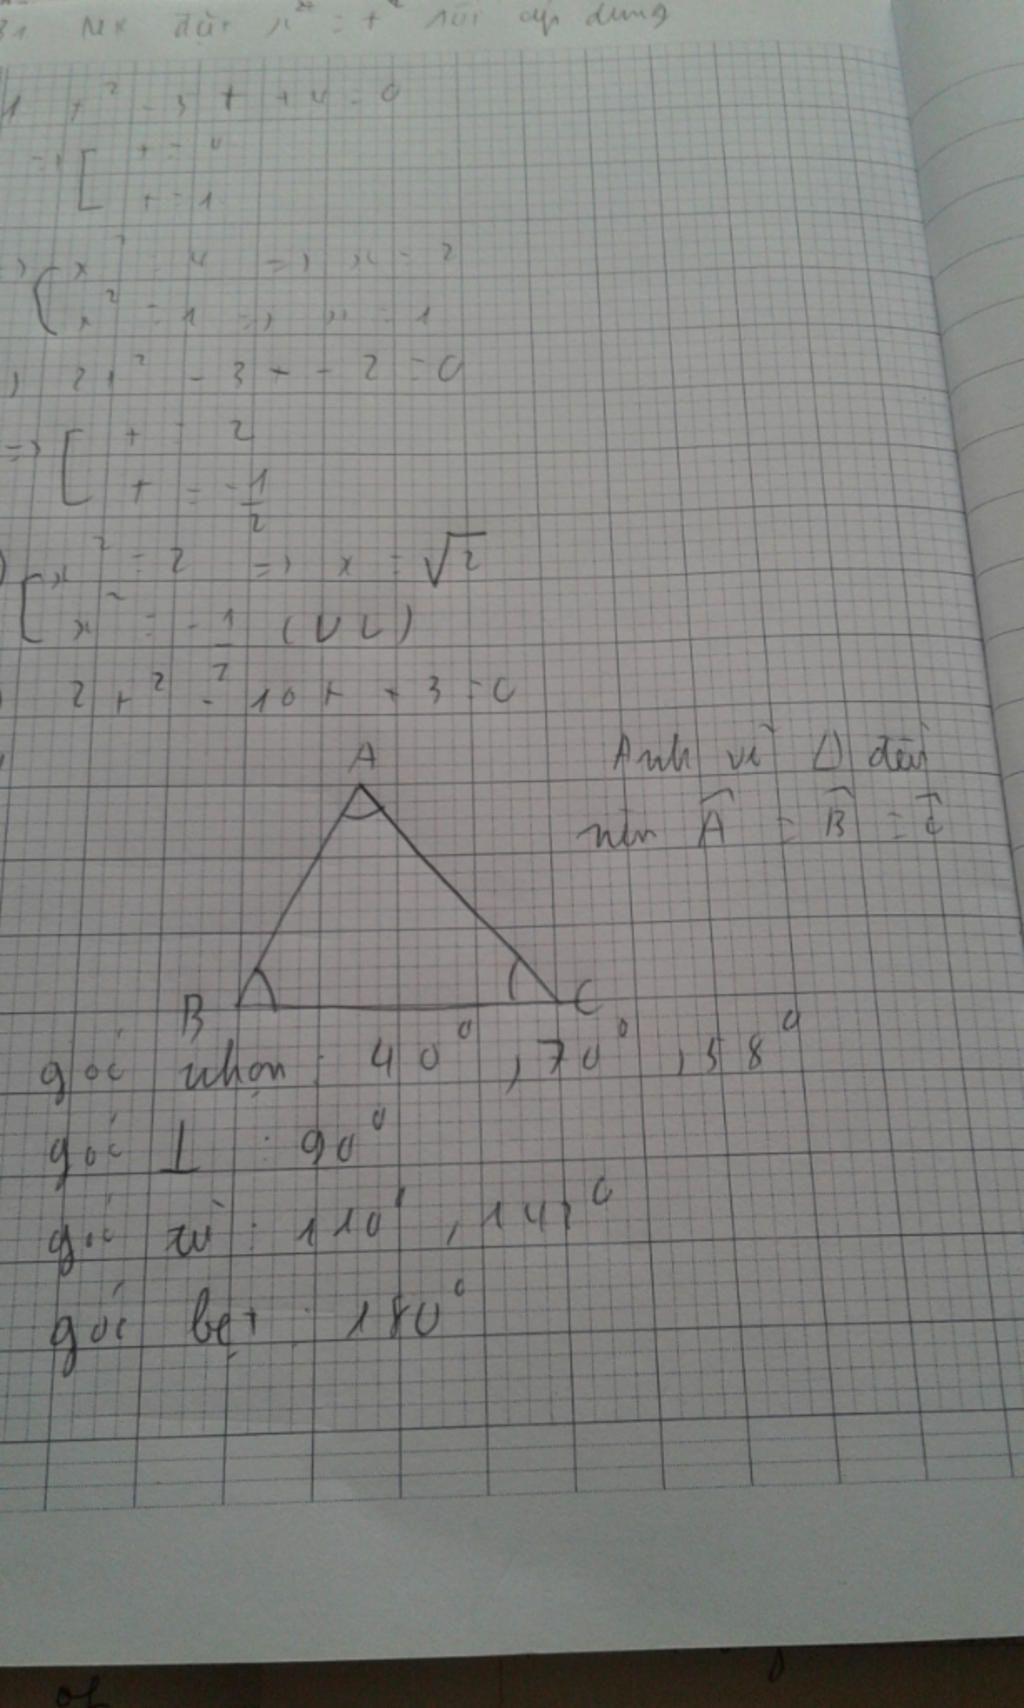 t² - 3t + 4 = 0
=> [ t = 4
t = 1
x² = 4 => x = 2
x² = 1 => x = 1
2t² - 3t - 2 = 0
=> [ t = 2
t = -1/2
[ x² = 2 => x = √2
x² = -1/2 (VL)
2t² - 10t + 3 = 0
A
B
C
Anh vì Δ đều
nên Â = B̂ = Ĉ
góc nhọn : 40⁰ , 70⁰ , 58⁰
góc ⊥ : 90⁰
góc tù : 110⁰ ,
góc bẹt : 180⁰